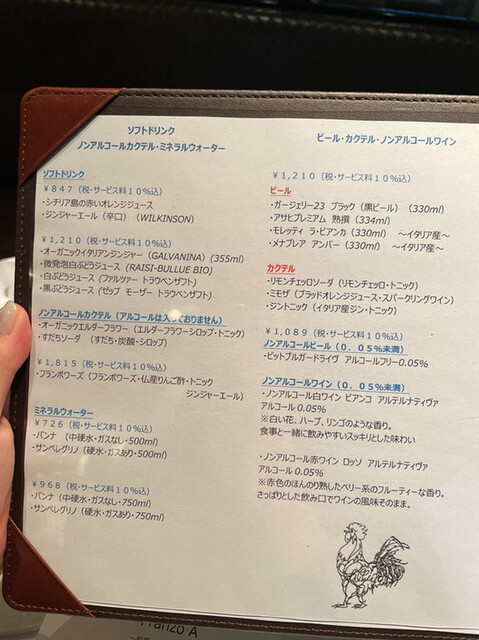 ソフトドリンク
ノンアルコールカクテル・ミネラルウォーター
ソフトドリンク
¥847（税・サービス料10%込）
・シチリア島の赤いオレンジジュース
・ジンジャーエール（辛口）（WILKINSON）
¥1,210（税・サービス料10%込）
・オーガニックイタリアンジンジャー（GALVANINA）(355ml)
・微発泡白ぶどうジュース（RAISI-BULLUE BIO）
・白ぶどうジュース（ファルツァー トラウベンザフト）
・黒ぶどうジュース（ゼップ モーザー トラウベンザフト）
ノンアルコールカクテル（アルコールは入っておりません）
・オーガニックエルダーフラワー（エルダーフラワーシロップ・トニック）
・すだちソーダ （すだち・炭酸・シロップ）
¥1,815（税・サービス料10%込）
・フランボワーズ（フランボワーズ・仏産りんご酢・トニック
ジンジャーエール）
ミネラルウォーター
¥726（税・サービス料10%込）
・パンナ（中硬水・ガスなし・500ml）
・サンペレグリノ（硬水・ガスあり・500ml）
¥968（税・サービス料10%込）
・パンナ（中硬水・ガスなし・750ml）
・サンペレグリノ（硬水・ガスあり・750ml）
ビール・カクテル・ノンアルコールワイン
¥1,210（税・サービス料10%込）
ビール
・ガージェリー23 ブラック（黒ビール）（330ml）
・アサヒプレミアム 熟撰（334ml）
・モレッティ ラ・ビアンカ（330ml） ～イタリア産～
・メナブレア アンバー（330ml） ～イタリア産～
カクテル
・リモンチェッロソーダ（リモンチェッロ・トニック）
・ミモザ（ブラッドオレンジジュース・スパークリングワイン）
・ジントニック（イタリア産ジン・トニック）
¥1,089（税・サービス料10%込）
ノンアルコールビール（0．05%未満）
・ビットブルガードライヴ アルコールフリー0.05%
ノンアルコールワイン（0．05%未満）
・ノンアルコール白ワイン ビアンコ アルテルナティヴァ
アルコール0.05%
※白い花、ハーブ、リンゴのような香り。
食事と一緒に飲みやすいスッキリとした味わい
・ノンアルコール赤ワイン ロッソ アルテルナティヴァ
アルコール0.05%
※赤色のほんのり熟したベリー系のフルーティーな香り。
さっぱりとした飲み口でワインの風味そのまま。
Franzo A